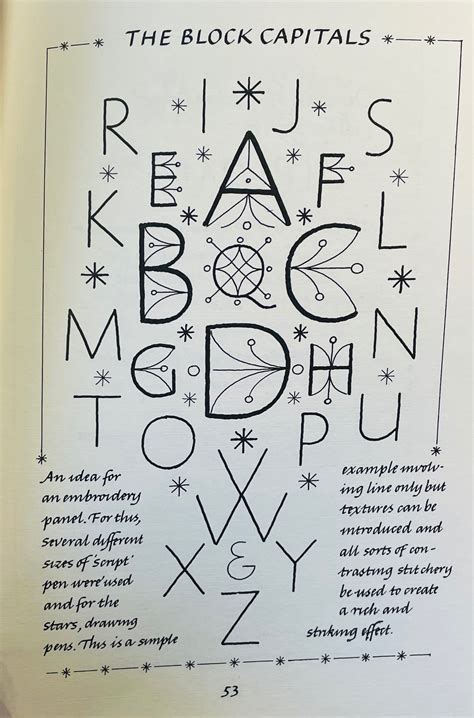 THE BLOCK CAPITALS
R I J S
E A F
K B Q C L
M G D H N
T O P U
W
X & Y
Z
An idea for
an embroidery
panel. For this,
several different
sizes of 'script'
pen were used
and for the
stars, drawing
pens. This is a simple
example involv-
ing line only but
textures can be
introduced and
all sorts of con-
trasting stitchery
be used to create
a rich and
striking effect.
53